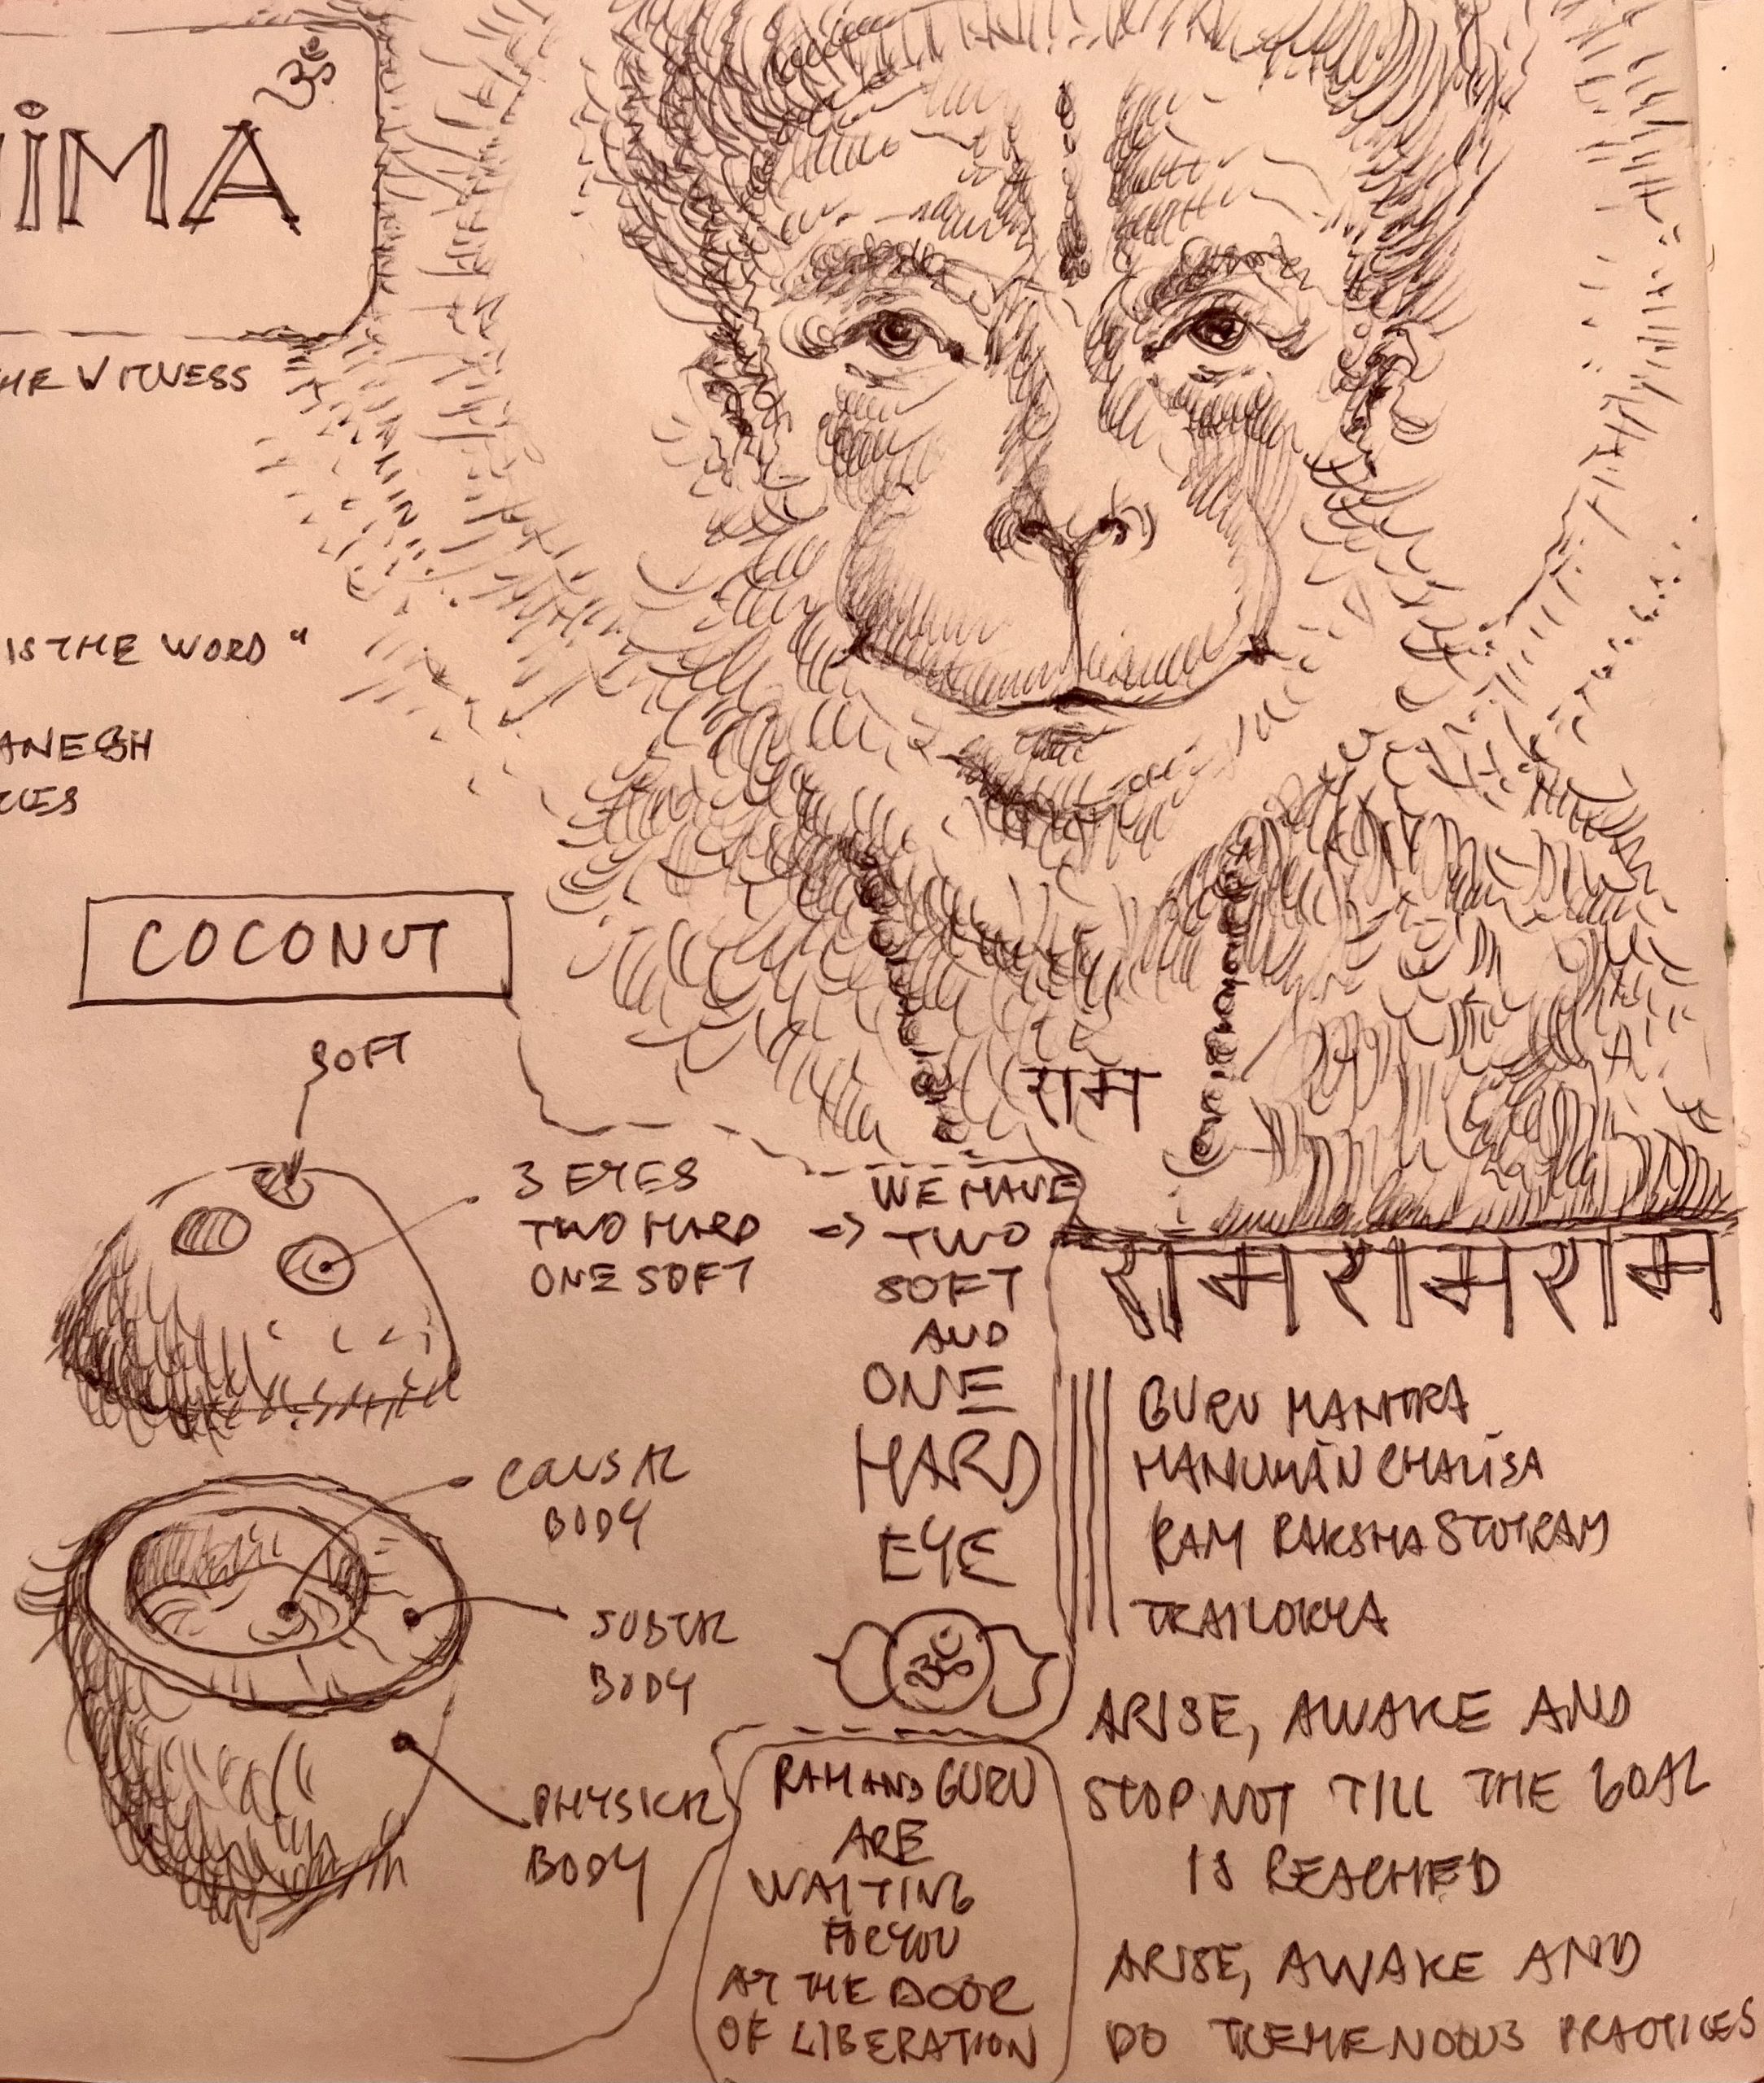 ॐ
IMA
THE WITNESS
IS THE WORD "
ANESH
COCONUT
SOFT
3 EYES
TWO HARD
ONE SOFT
=> WE HAVE
TWO
SOFT
AND
ONE
HARD
EYE
ॐ
CAUSAL
BODY
SUBTAL
BODY
PHYSICAL
BODY
RAM AND GURU
ARE
WAITING
FOR YOU
AT THE DOOR
OF LIBERATION
राम
रामरामराम
GURU MANTRA
HANUMĀN CHALĪSA
RAM RAKSHA STOTRAM
TRAILOKYA
ARISE, AWAKE AND
STOP NOT TILL THE GOAL
IS REACHED
ARISE, AWAKE AND
DO TREMENDOUS PRACTICES